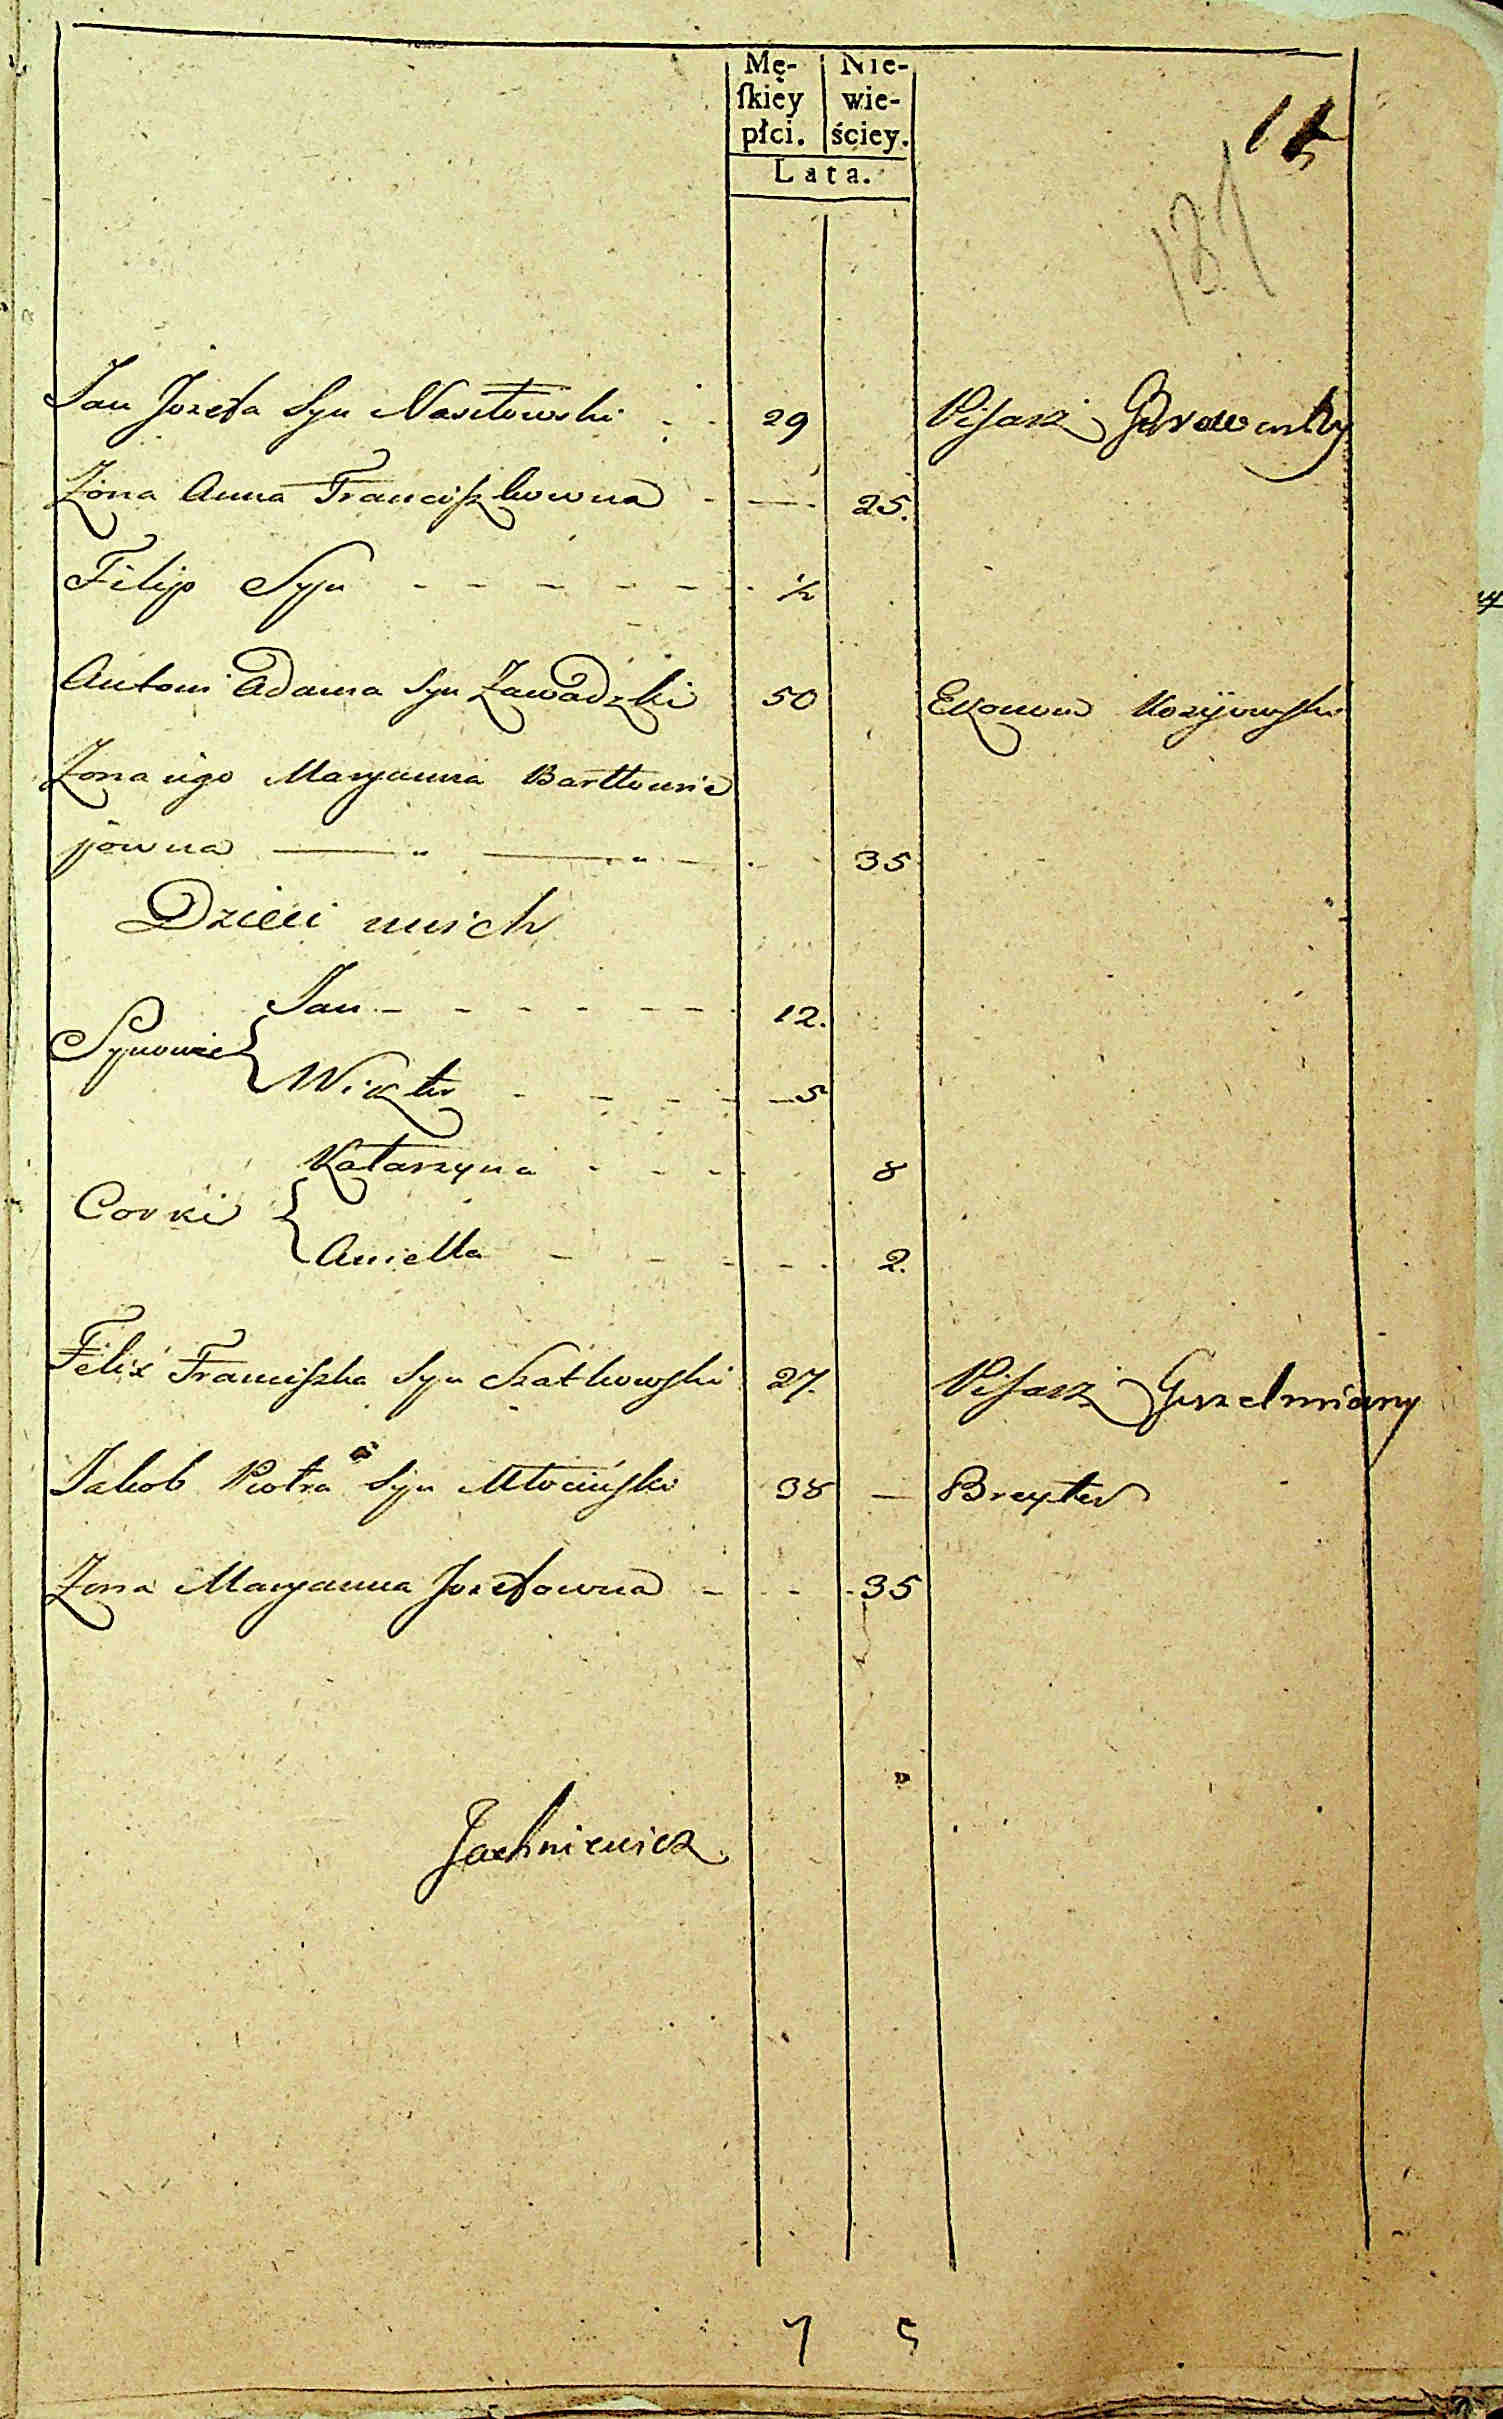 Mę- Nie-
ſkiey wie-
płci. ściey.
Lata.
131
Jan Jozefa Syn Nasiłowski 29 Pisarz
Żona Anna Franciszkowna 25.
Filip Syn ½
Antoni Adama Syn Zawadzki 50 Ekonom
Zona iego Maryanna Bartłomie
jowna 35
Dzieci onich
Synowie Jan 12.
Wiktor 5
Corki Katarzyna 8
Aniella 2.
Felix Franciszka Syn Szatkowski 27. Pisarz Gorzelniany
Jakob Piotra Syn Młocinski 38 — Breyter
Zona Maryanna Jozefowna 35
Jachniewicz
7 5